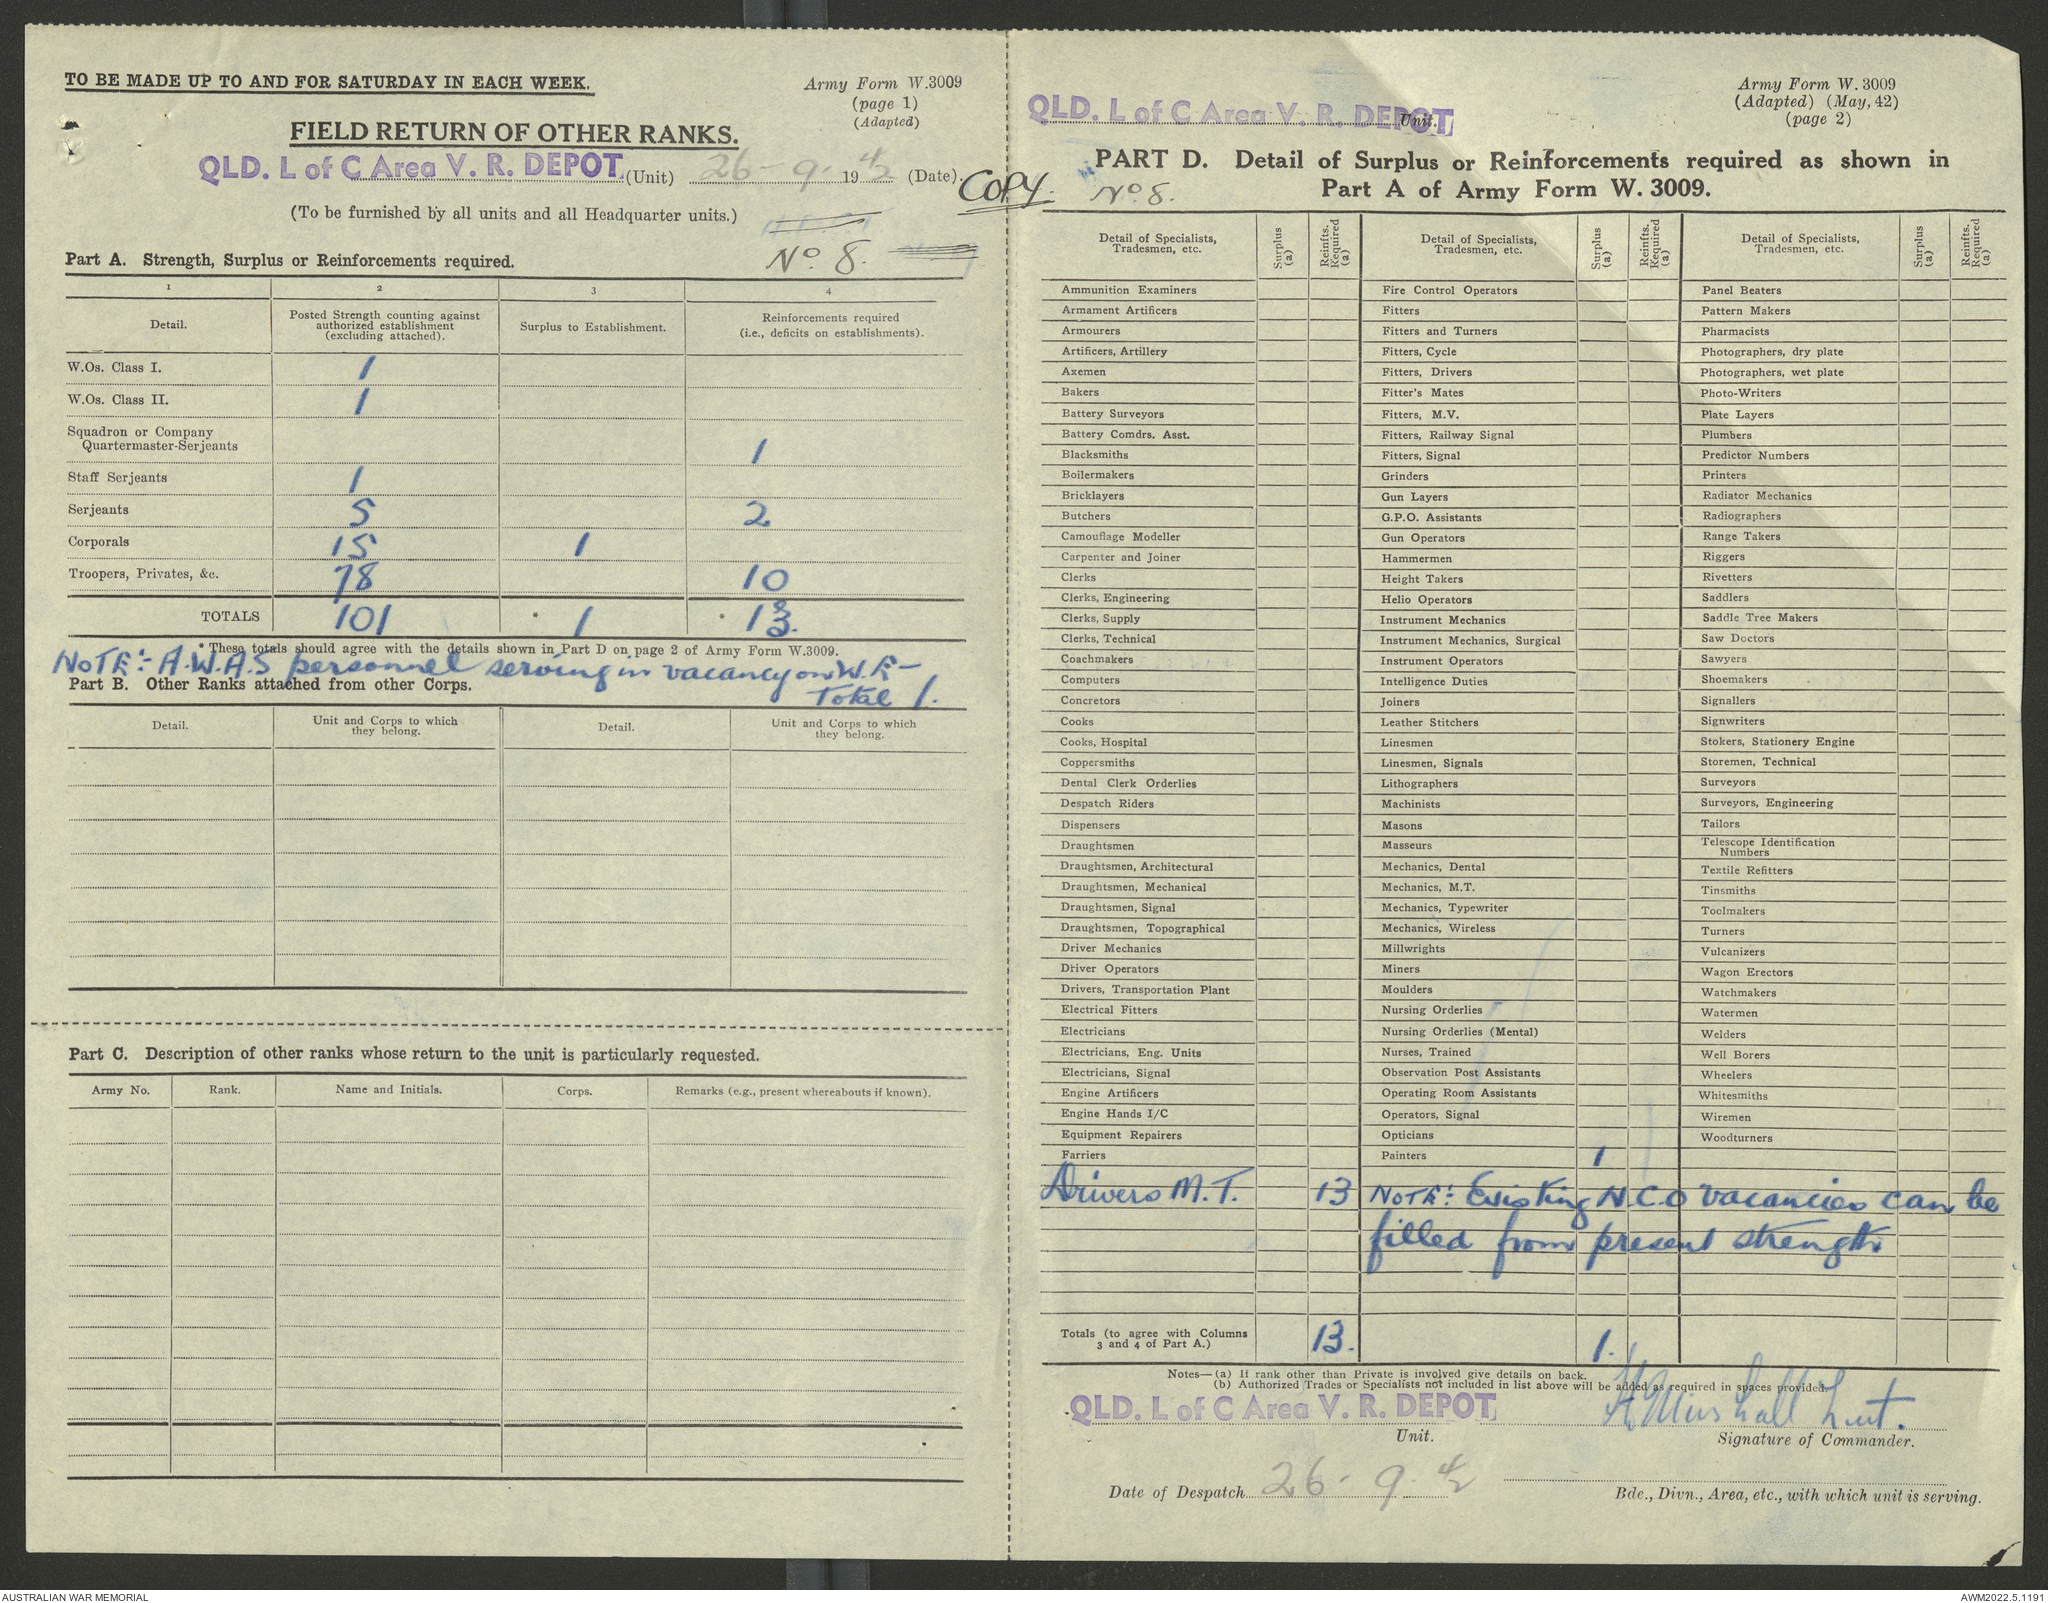 TO BE MADE UP TO AND FOR SATURDAY IN EACH WEEK.
Army Form W.3009
(page 1)
(Adapted)
FIELD RETURN OF OTHER RANKS.
QLD. L of C Area V. R. DEPOT (Unit) 26-9. 1942 (Date).
COPY.
(To be furnished by all units and all Headquarter units.)
No. 8.
Part A. Strength, Surplus or Reinforcements required.
1 2 3 4
Detail. Posted Strength counting against authorized establishment (excluding attached). Surplus to Establishment. Reinforcements required (i.e., deficits on establishments).
W.Os. Class I. 1
W.Os. Class II. 1
Squadron or Company
Quartermaster-Serjeants 1
Staff Serjeants 1
Serjeants 5 2
Corporals 15 1
Troopers, Privates, &c. 78 10
TOTALS 101 * 1 * 13.
* These totals should agree with the details shown in Part D on page 2 of Army Form W.3009.
NOTE:- A.W.A.S personnel serving in vacancy on W.E-
Total 1.
Part B. Other Ranks attached from other Corps.
Detail. Unit and Corps to which they belong. Detail. Unit and Corps to which they belong.
Part C. Description of other ranks whose return to the unit is particularly requested.
Army No. Rank. Name and Initials. Corps. Remarks (e.g., present whereabouts if known).
Army Form W. 3009
(Adapted) (May, 42)
(page 2)
QLD. L of C Area V. R. DEPOT Unit.
PART D. Detail of Surplus or Reinforcements required as shown in
Part A of Army Form W. 3009.
No. 8.
Detail of Specialists, Tradesmen, etc. Surplus (a) Reinfts. Required (a) Detail of Specialists, Tradesmen, etc. Surplus (a) Reinfts. Required (a) Detail of Specialists, Tradesmen, etc. Surplus (a) Reinfts. Required (a)
Ammunition Examiners
Armament Artificers
Armourers
Artificers, Artillery
Axemen
Bakers
Battery Surveyors
Battery Comdrs. Asst.
Blacksmiths
Boilermakers
Bricklayers
Butchers
Camouflage Modeller
Carpenter and Joiner
Clerks
Clerks, Engineering
Clerks, Supply
Clerks, Technical
Coachmakers
Computers
Concretors
Cooks
Cooks, Hospital
Coppersmiths
Dental Clerk Orderlies
Despatch Riders
Dispensers
Draughtsmen
Draughtsmen, Architectural
Draughtsmen, Mechanical
Draughtsmen, Signal
Draughtsmen, Topographical
Driver Mechanics
Driver Operators
Drivers, Transportation Plant
Electrical Fitters
Electricians
Electricians, Eng. Units
Electricians, Signal
Engine Artificers
Engine Hands I/C
Equipment Repairers
Farriers
Drivers M.T. 13
Fire Control Operators
Fitters
Fitters and Turners
Fitters, Cycle
Fitters, Drivers
Fitter's Mates
Fitters, M.V.
Fitters, Railway Signal
Fitters, Signal
Grinders
Gun Layers
G.P.O. Assistants
Gun Operators
Hammermen
Height Takers
Helio Operators
Instrument Mechanics
Instrument Mechanics, Surgical
Instrument Operators
Intelligence Duties
Joiners
Leather Stitchers
Linesmen
Linesmen, Signals
Lithographers
Machinists
Masons
Masseurs
Mechanics, Dental
Mechanics, M.T.
Mechanics, Typewriter
Mechanics, Wireless
Millwrights
Miners
Moulders
Nursing Orderlies
Nursing Orderlies (Mental)
Nurses, Trained
Observation Post Assistants
Operating Room Assistants
Operators, Signal
Opticians
Painters 1
Panel Beaters
Pattern Makers
Pharmacists
Photographers, dry plate
Photographers, wet plate
Photo-Writers
Plate Layers
Plumbers
Predictor Numbers
Printers
Radiator Mechanics
Radiographers
Range Takers
Riggers
Rivetters
Saddlers
Saddle Tree Makers
Saw Doctors
Sawyers
Shoemakers
Signallers
Signwriters
Stokers, Stationery Engine
Storemen, Technical
Surveyors
Surveyors, Engineering
Tailors
Telescope Identification
Numbers
Textile Refitters
Tinsmiths
Toolmakers
Turners
Vulcanizers
Wagon Erectors
Watchmakers
Watermen
Welders
Well Borers
Wheelers
Whitesmiths
Wiremen
Woodturners
NOTE:- Existing N.C.O vacancies can be
filled from present strength
Totals (to agree with Columns
3 and 4 of Part A.) 13. 1.
Notes—(a) If rank other than Private is involved give details on back.
(b) Authorized Trades or Specialists not included in list above will be added as required in spaces provided.
QLD. L of C Area V. R. DEPOT Marshall Lieut.
Unit. Signature of Commander.
Date of Despatch 26-9.42
Bde., Divn., Area, etc., with which unit is serving.
AUSTRALIAN WAR MEMORIAL
AWM2022.5.1191